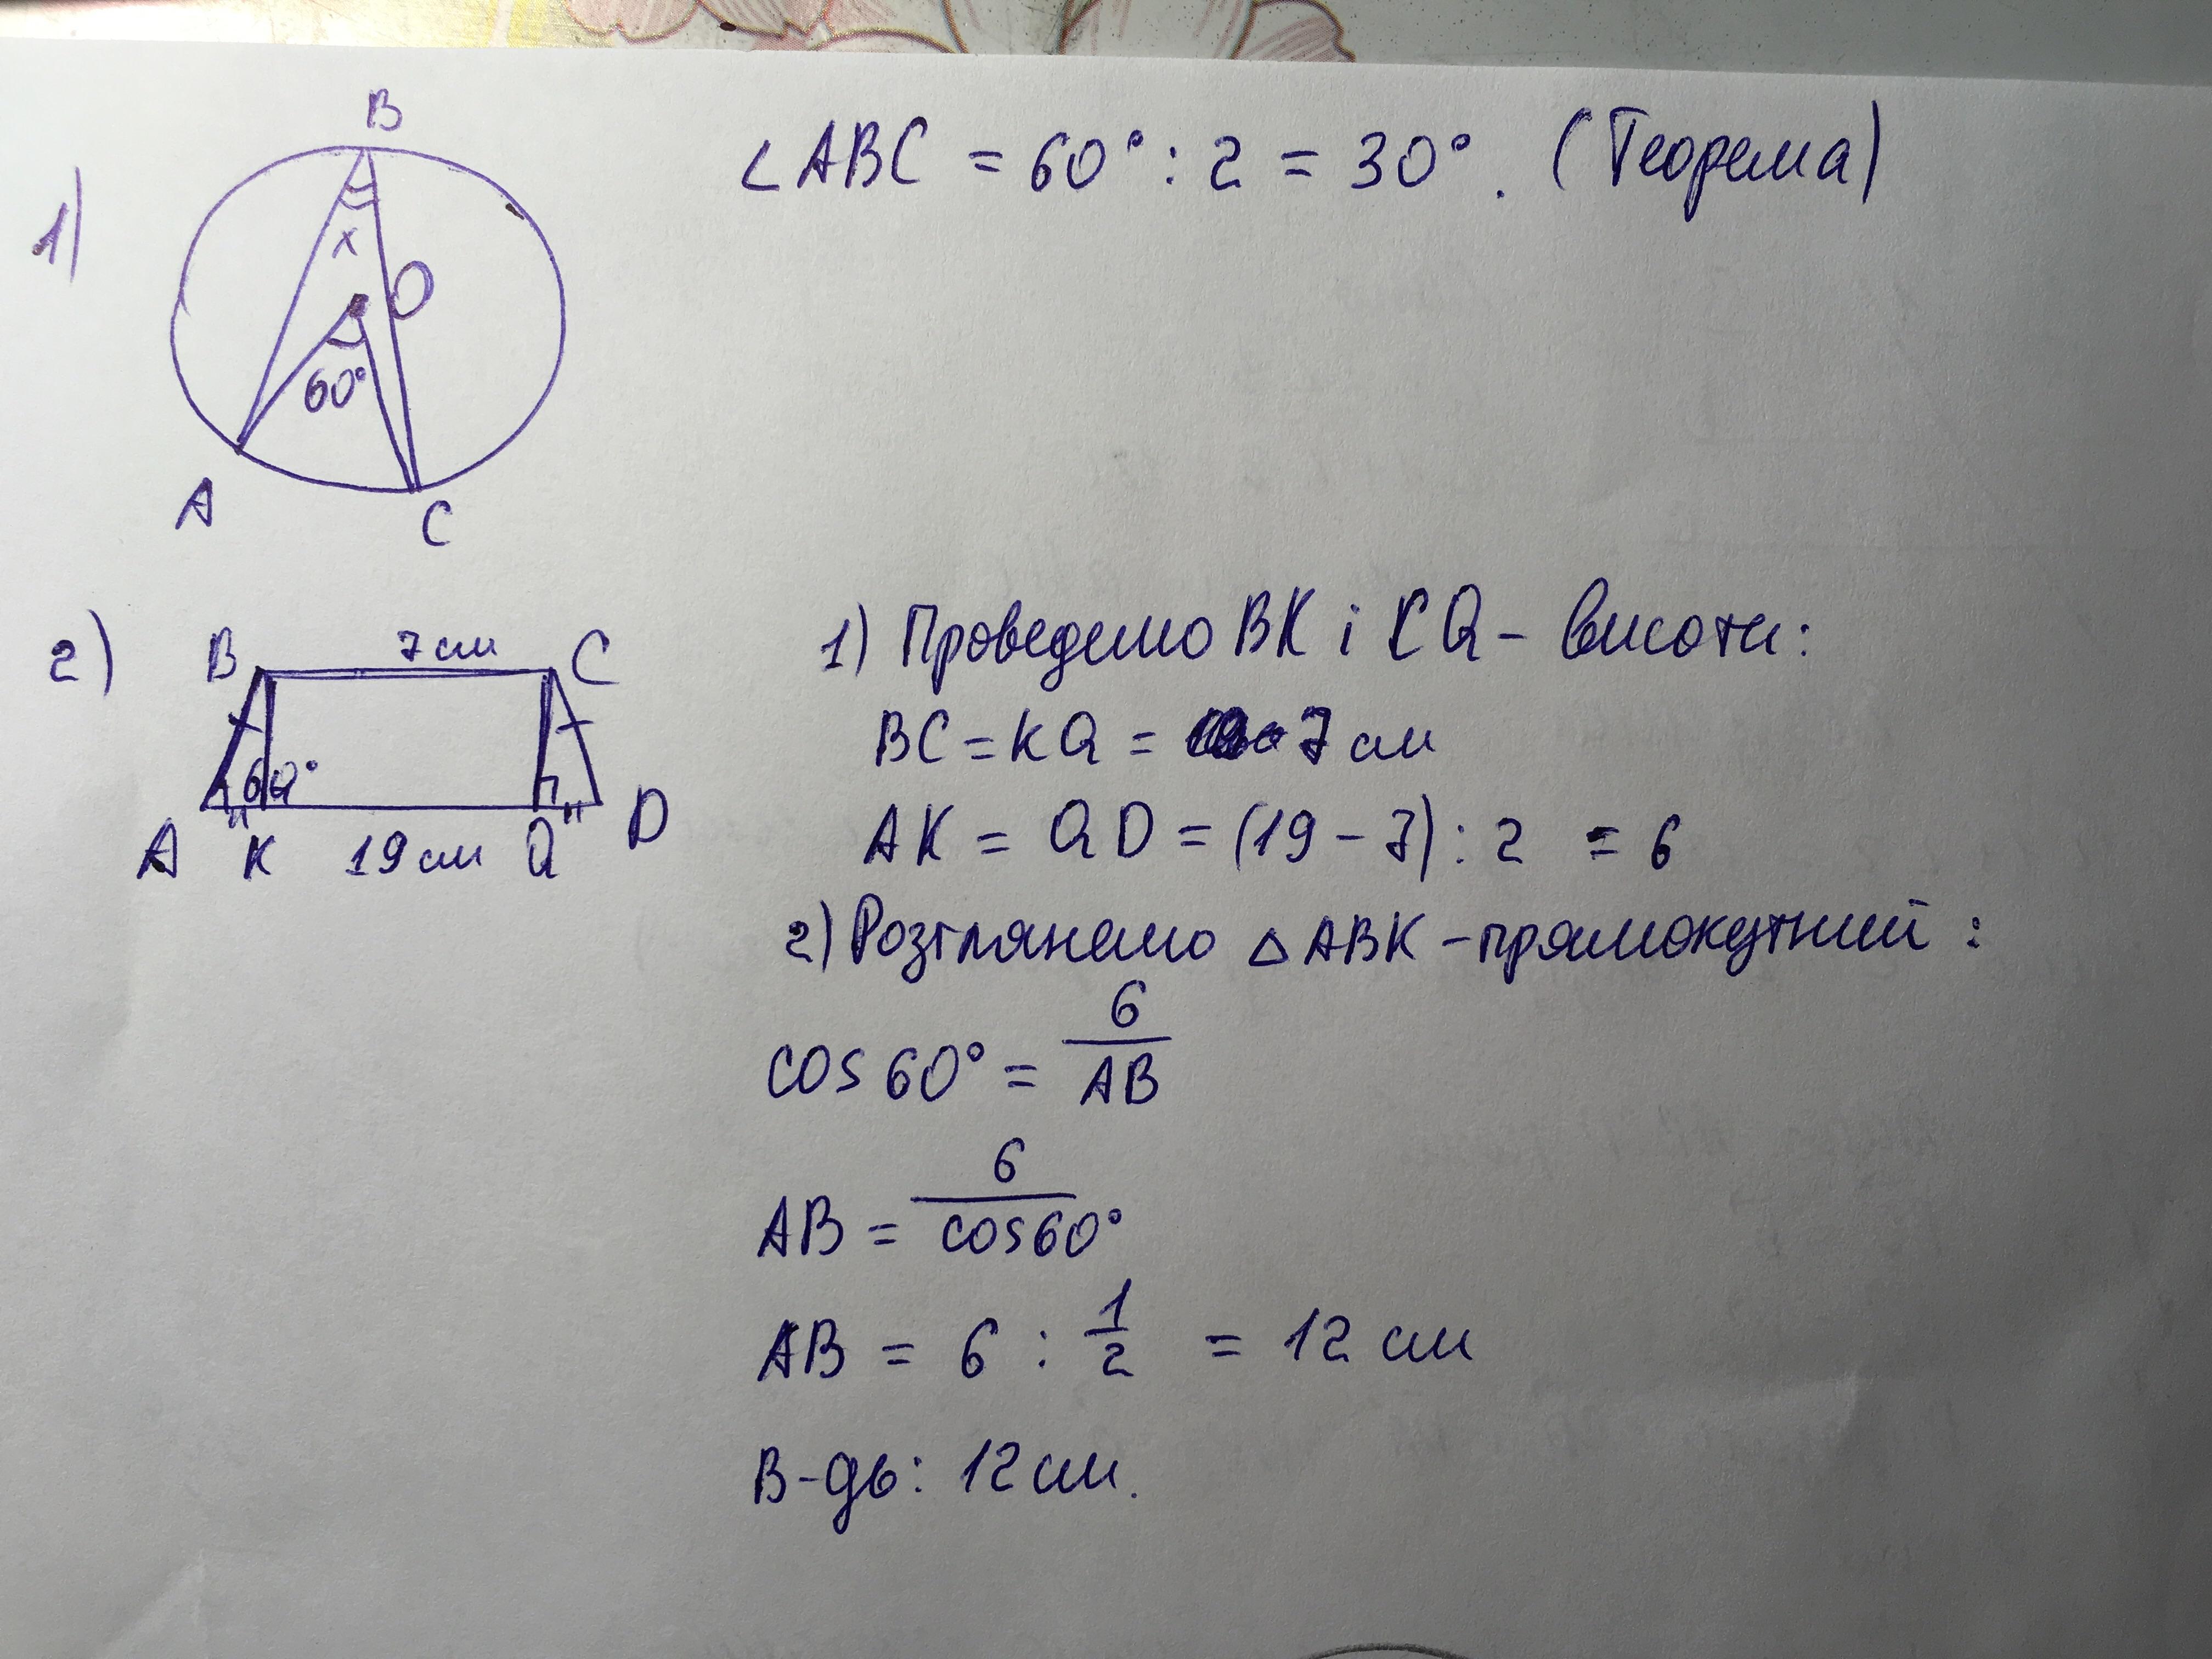 1)
B
∠ABC = 60° : 2 = 30°. (Теорема)
x
O
60°
A
C
2)
B 7 см C
60°
A K 19 см Q D
1) Проведемо BK і CQ - висоти:
BC = KQ = 7 см
AK = QD = (19 - 7) : 2 = 6
2) Розглянемо △ABK - прямокутний :
cos 60° = 6/AB
AB = 6/cos60°
AB = 6 : 1/2 = 12 см
В-дь: 12 см.